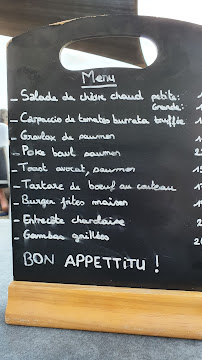 Menu
_ Salade de chèvre chaud petite:
Grande:
_ Carpaccio de tomates burrata truffée
_ Gravlax de saumon
_ Poke bowl saumon
_ Toast avocat, saumon
_ Tartare de bœuf au couteau
_ Burger frites maison
_ Entrecôte charolaise
_ Gambas grillées
BON APPETTITU !